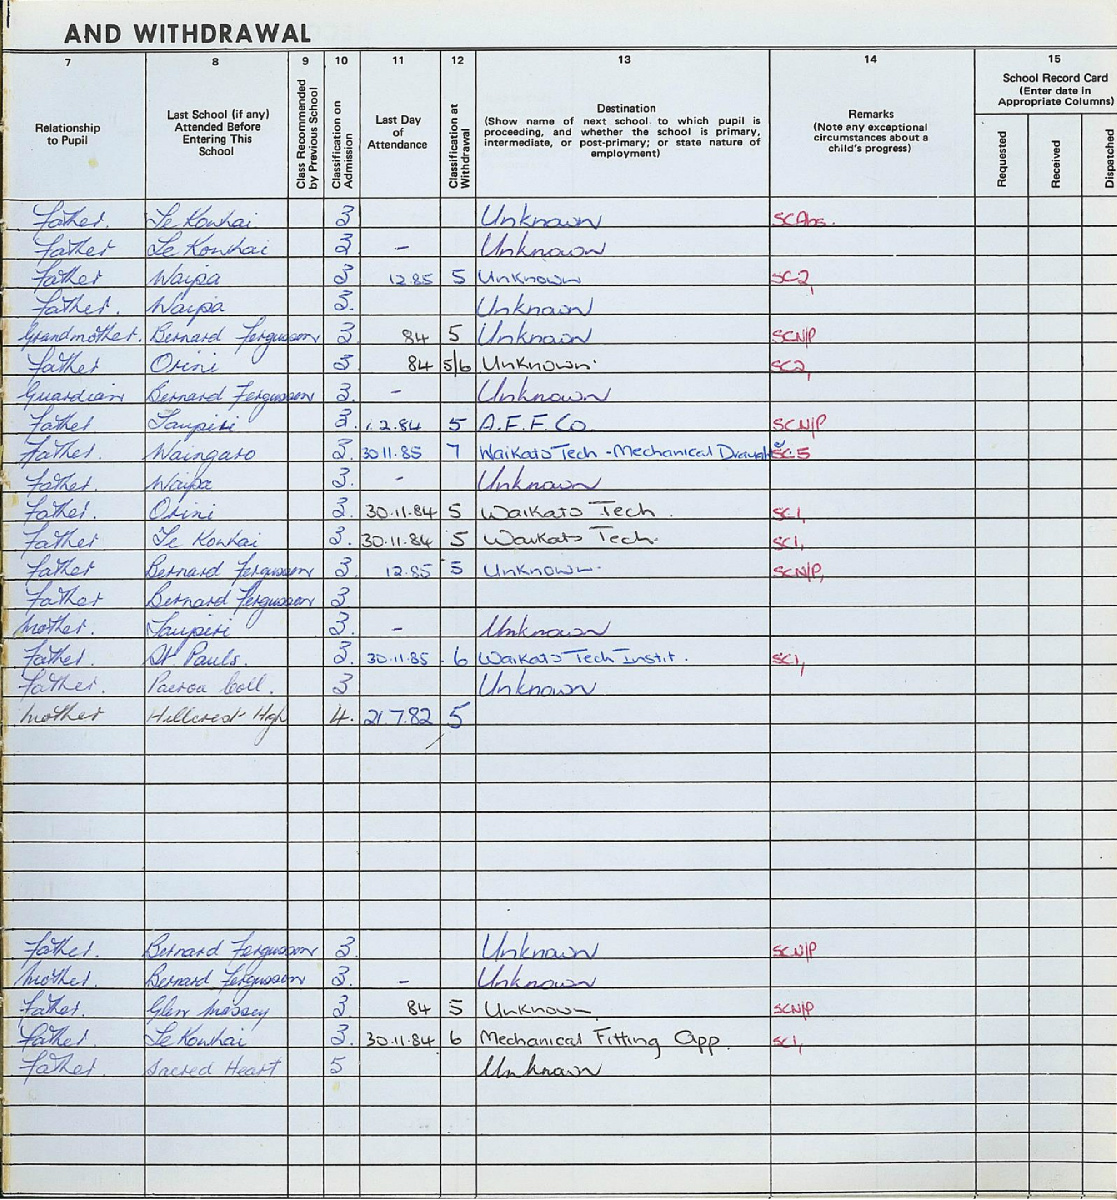 AND WITHDRAWAL
7 8 9 10 11 12 13 14 15
Relationship to Pupil
Last School (if any) Attended Before Entering This School
Class Recommended by Previous School
Classification on Admission
Last Day of Attendance
Classification at Withdrawal
Destination
(Show name of next school to which pupil is proceeding, and whether the school is primary, intermediate, or post-primary; or state nature of employment)
Remarks
(Note any exceptional circumstances about a child's progress)
School Record Card
(Enter date in Appropriate Columns)
Requested
Received
Dispatched
Father. Te Kowhai 3 Unknown SCAbs.
Father Te Kowhai 3 – Unknown
Father Waipa 3 12.85 5 Unknown SC2,
Father. Waipa 3. Unknown
Grandmother. Bernard Fergusson 3 84 5 Unknown SCN/P
Father Orini 3 84 5/6 Unknown. SC2,
Guardian Bernard Fergusson 3. – Unknown
Father Taupiri 3. 1.2.84 5 A.F.F.Co. SCN/P
Father. Waingaro 3. 30.11.85 7 Waikato Tech - Mechanical SC5
Father Waipa 3. – Unknown
Father. Orini 3. 30.11.84 5 Waikato Tech. SC1,
Father Te Kowhai 3. 30.11.84 5 Waikato Tech. SC1,
Father Bernard Fergusson 3 12.85 5 Unknown. SCN/P,
Father Bernard Fergusson 3
Mother. Taupiri 3. – Unknown
Father. St Pauls. 3. 30.11.85 6 Waikato Tech Instit. SC1,
Father. Paeroa Coll. 3 Unknown
Mother Hillcrest High 4. 21.7.82 5
Father. Bernard Fergusson 3. Unknown SCN/P
Mother. Bernard Fergusson 3. – Unknown
Father. Glen Massey 3. 84 5 Unknown. SCN/P
Father. Te Kowhai 3. 30.11.84 6 Mechanical Fitting App. SC1,
Father. Sacred Heart 5 Unknown